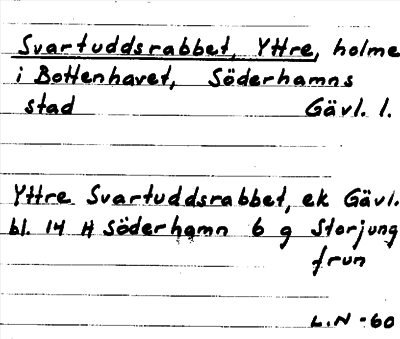 Svartuddsrabbet, Yttre, holme
i Bottenhavet, Söderhamns
stad Gävl. l.
Yttre Svartuddsrabbet, ek Gävl.
bl. 14 H Söderhamn 6 g Storjung
frun
L.N -60